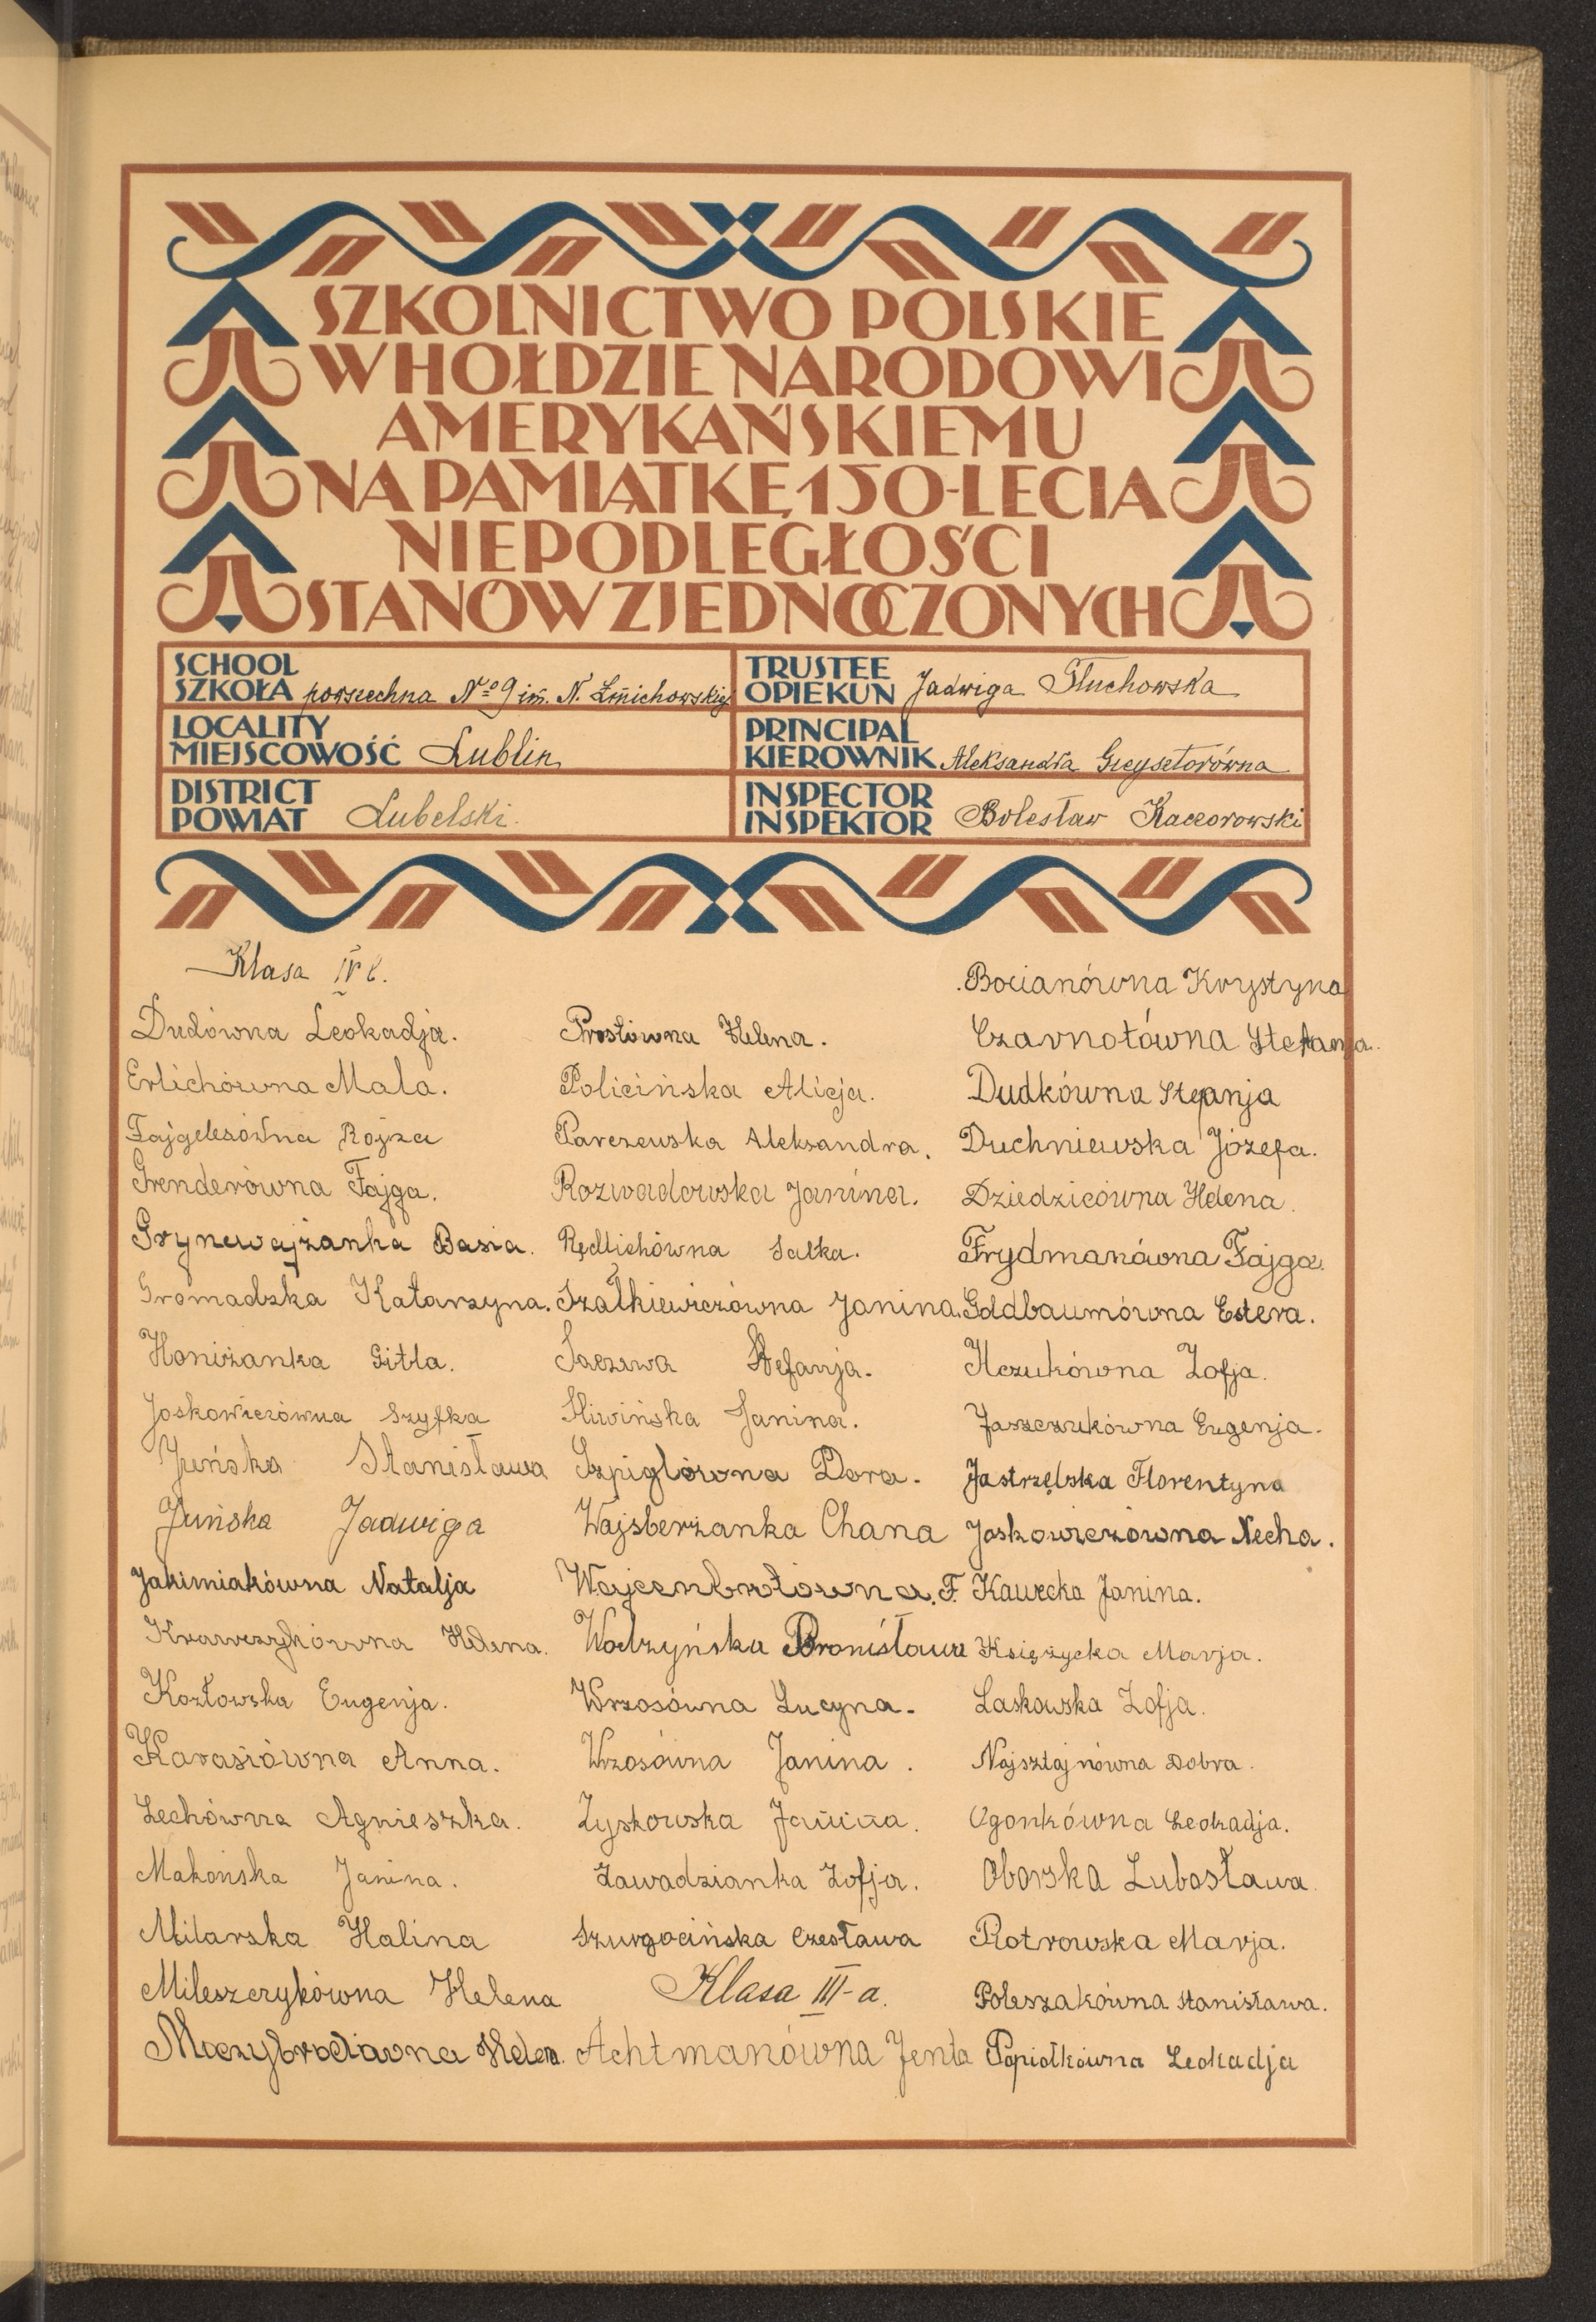 SZKOLNICTWO POLSKIE
W HOŁDZIE NARODOWI
AMERYKAŃSKIEMU
NA PAMIĄTKĘ 150-LECIA
NIEPODLEGŁOŚCI
STANÓW ZJEDNOCZONYCH
SCHOOL
SZKOŁA powszechna Nº 9 im. N. Żmichowskiej
LOCALITY
MIEJSCOWOŚĆ Lublin
DISTRICT
POWIAT Lubelski.
TRUSTEE
OPIEKUN Jadwiga Głuchowska
PRINCIPAL
KIEROWNIK Aleksandra Gieysztorówna
INSPECTOR
INSPEKTOR Bolesław Kaczorowski
Klasa IV b.
Dudówna Leokadja.
Erlichówna Mala.
Fajgelesówna Rojza
Grenderówna Fajga.
Grynewajżanka Basia.
Gromadzka Katarzyna.
Honiżanka Gitla.
Joskowiczówna Szyfka
Juńska Stanisława
Juńska Jadwiga
Jakimiakówna Natalja
Krawczykówna Helena.
Kozłowska Eugenja.
Karasiówna Anna.
Lechówna Agnieszka.
Makońska Janina.
Milarska Halina
Mileszczykówna Helena
Moczybrodówna Helena.
Prostówna Helena.
Policińska Alicja.
Parczewska Aleksandra.
Rozwadowska Janina.
Redlichówna Salka.
Szałkiewiczówna Janina.
Saczewa Stefanja.
Śliwińska Janina.
Szpiglówna Dora.
Wajsberżanka Chana
F.
Wodzyńska Bronisława
Wrzosówna Lucyna.
Wrzosówna Janina.
Zyskowska Janina.
Zawadzianka Zofja.
Szurgocińska Czesława
Klasa III-a.
Achtmanówna Jenta
Bocianówna Krystyna
Czarnotówna Stefanja.
Dudkówna Stefanja
Duchniewska Józefa.
Dziedzicówna Helena.
Frydmanówna Fajga.
Goldbaumówna Estera.
Ilczukówna Zofja.
Jaszczukówna Eugenja.
Jastrzębska Florentyna
Joskowiczówna Necha.
Kawecka Janina.
Księżycka Marja.
Laskowska Zofja.
Najsztajnówna Dobra.
Ogonkówna Leokadja.
Oborska Lubosława
Piotrowska Marja.
Poleszakówna Stanisława.
Popiołkówna Leokadja